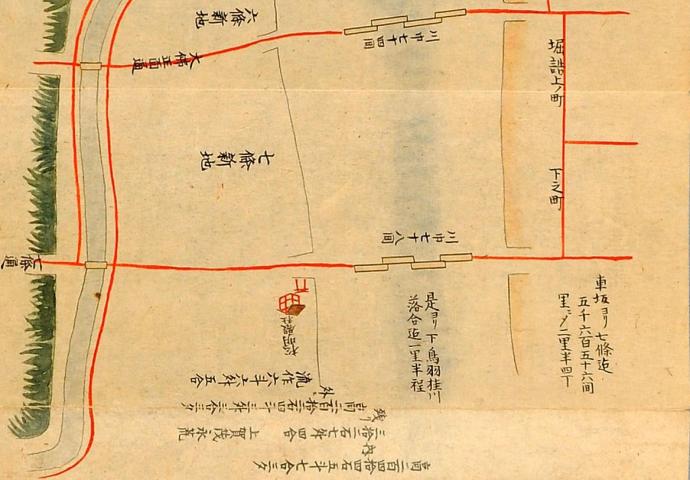 六條新地
川巾七十四間
大佛正面通
堀詰上ノ町
七條新地
下之町
川巾七十八間
七條通
車坂ヨリ七條迄
五千六百五十六間
里ニメ二里半四丁
是ヨリ下鳥羽桂川
落合迄一里半程
流作六斗六升五合
外
高二百拾三石四斗三升三合三夕
残り
三拾二石七升四合 上賀茂永荒
内
高二百四拾四石五斗七合三夕